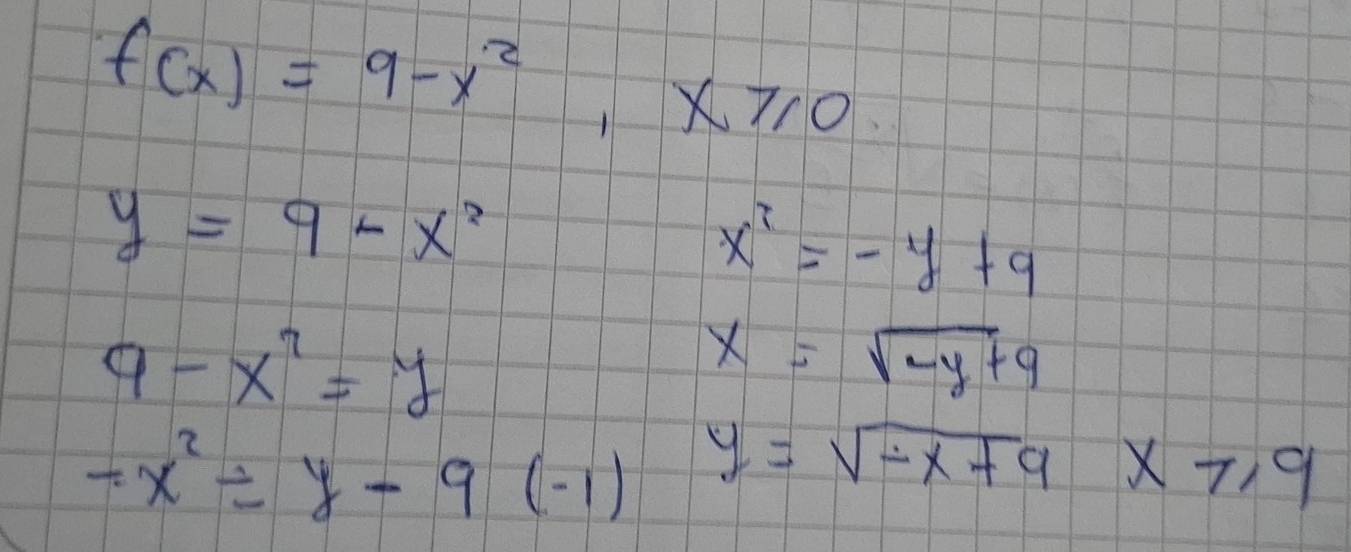 f(x) = 9 - x² , x ⩾ 0
y = 9 - x²
9 - x² = y
-x² = y - 9 (-1)
x² = -y + 9
x = √-y+9
y = √-x+9 x ⩾ 9